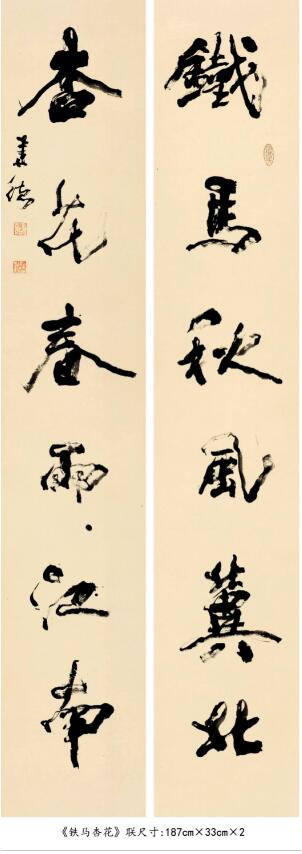 鐵馬秋風冀北
杏花春雨江南
《铁马杏花》联尺寸:187cm×33cm×2